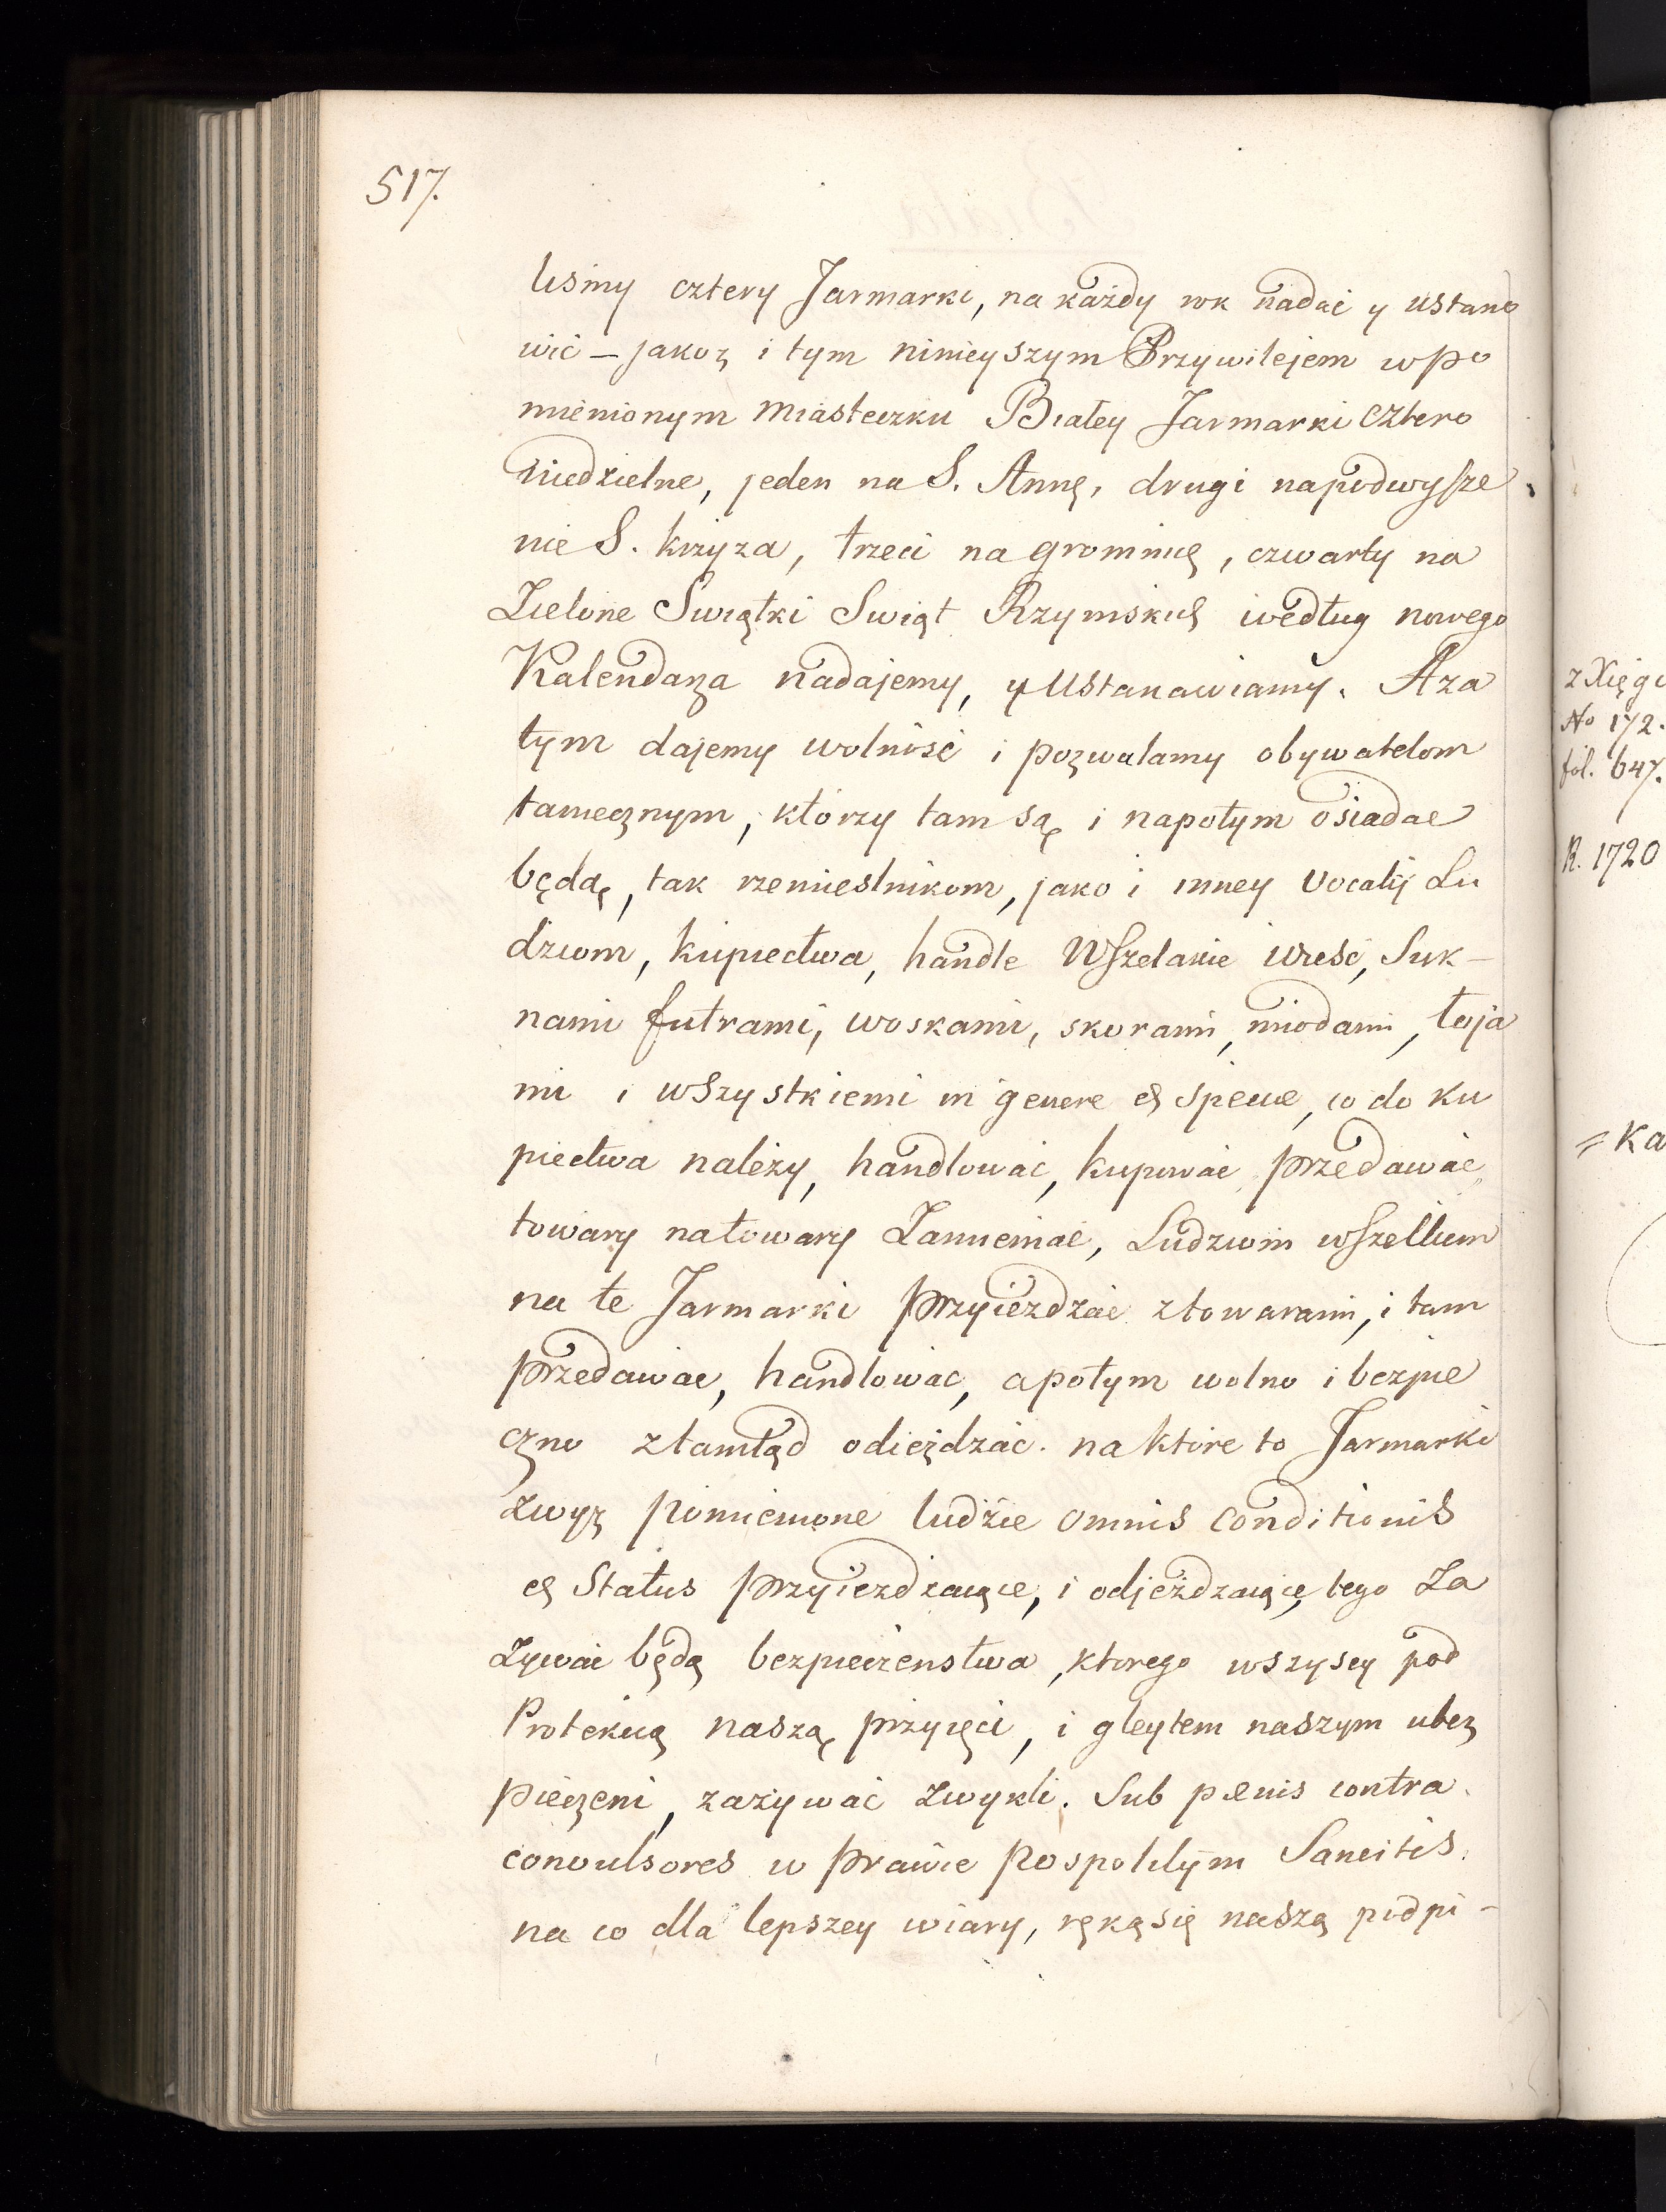 517.
liśmy cztery Jarmarki, na każdy rok nadać y ustano
wić – jakoz i tym ninieyszym Przywilejem wpo
mienionym miasteczku Białey Jarmarki cztero
niedzielne, jeden na S. Annę, drugi napodwyſze
nie S. krzyza, trzeci na gromnicę, czwarty na
Zielone Swiątki Swiąt Rzymskich według nowego
Kalendarza nadajemy, y Ustanawiamy. Aza
tym dajemy wolność i pozwalamy obywatelom
tamecznym, którzy tam są, i napotym osiadać
będą, tak rzemieslnikom, jako i inney Vocatij Lu
dziom, kupiectwa, handle Wſzelakie wieść, Suk–
nami futrami, woskami, skorami, miodami, łoja
mi i wszystkiemi in genere et specie, co do ku
piectwa należy, handlować, kupować, przedawać,
towary natowary Zamieniać, Ludziom wſzelkiem
na te Jarmarki przyieżdzać ztowarami, i tam
przedawać, handlować, apotym wolno i bezpie
czno ztamtąd odieżdzać. na które to Jarmarki
zwyz pomienione ludzie omnis conditionis
et Status przyiezdzaiące, i odjeżdzaiące, tego Za
Zywać będą bezpieczenstwa, ktorego wszyscy pod
Protekcią naszą, przyięci, i gleytem naszym ubez
pieczeni, zażywać zwykli. Sub pænis contra
convulsores w prawie pospolitym Sancitis.
na co dla lepszey wiary, ręką się naszą podpi–
z Xięgi
No 172.
fol. 647.
R. 1720
= Ka